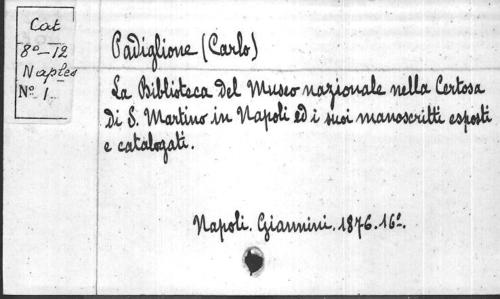 Cat
8º–T2
Naples
Nº 1.
Padiglione (Carlo)
La Biblioteca del Museo nazionale nella Certosa
di S. Martino in Napoli ed i suoi manoscritti esposti
e catalogati.
Napoli. Giannini. 1876. 16º.